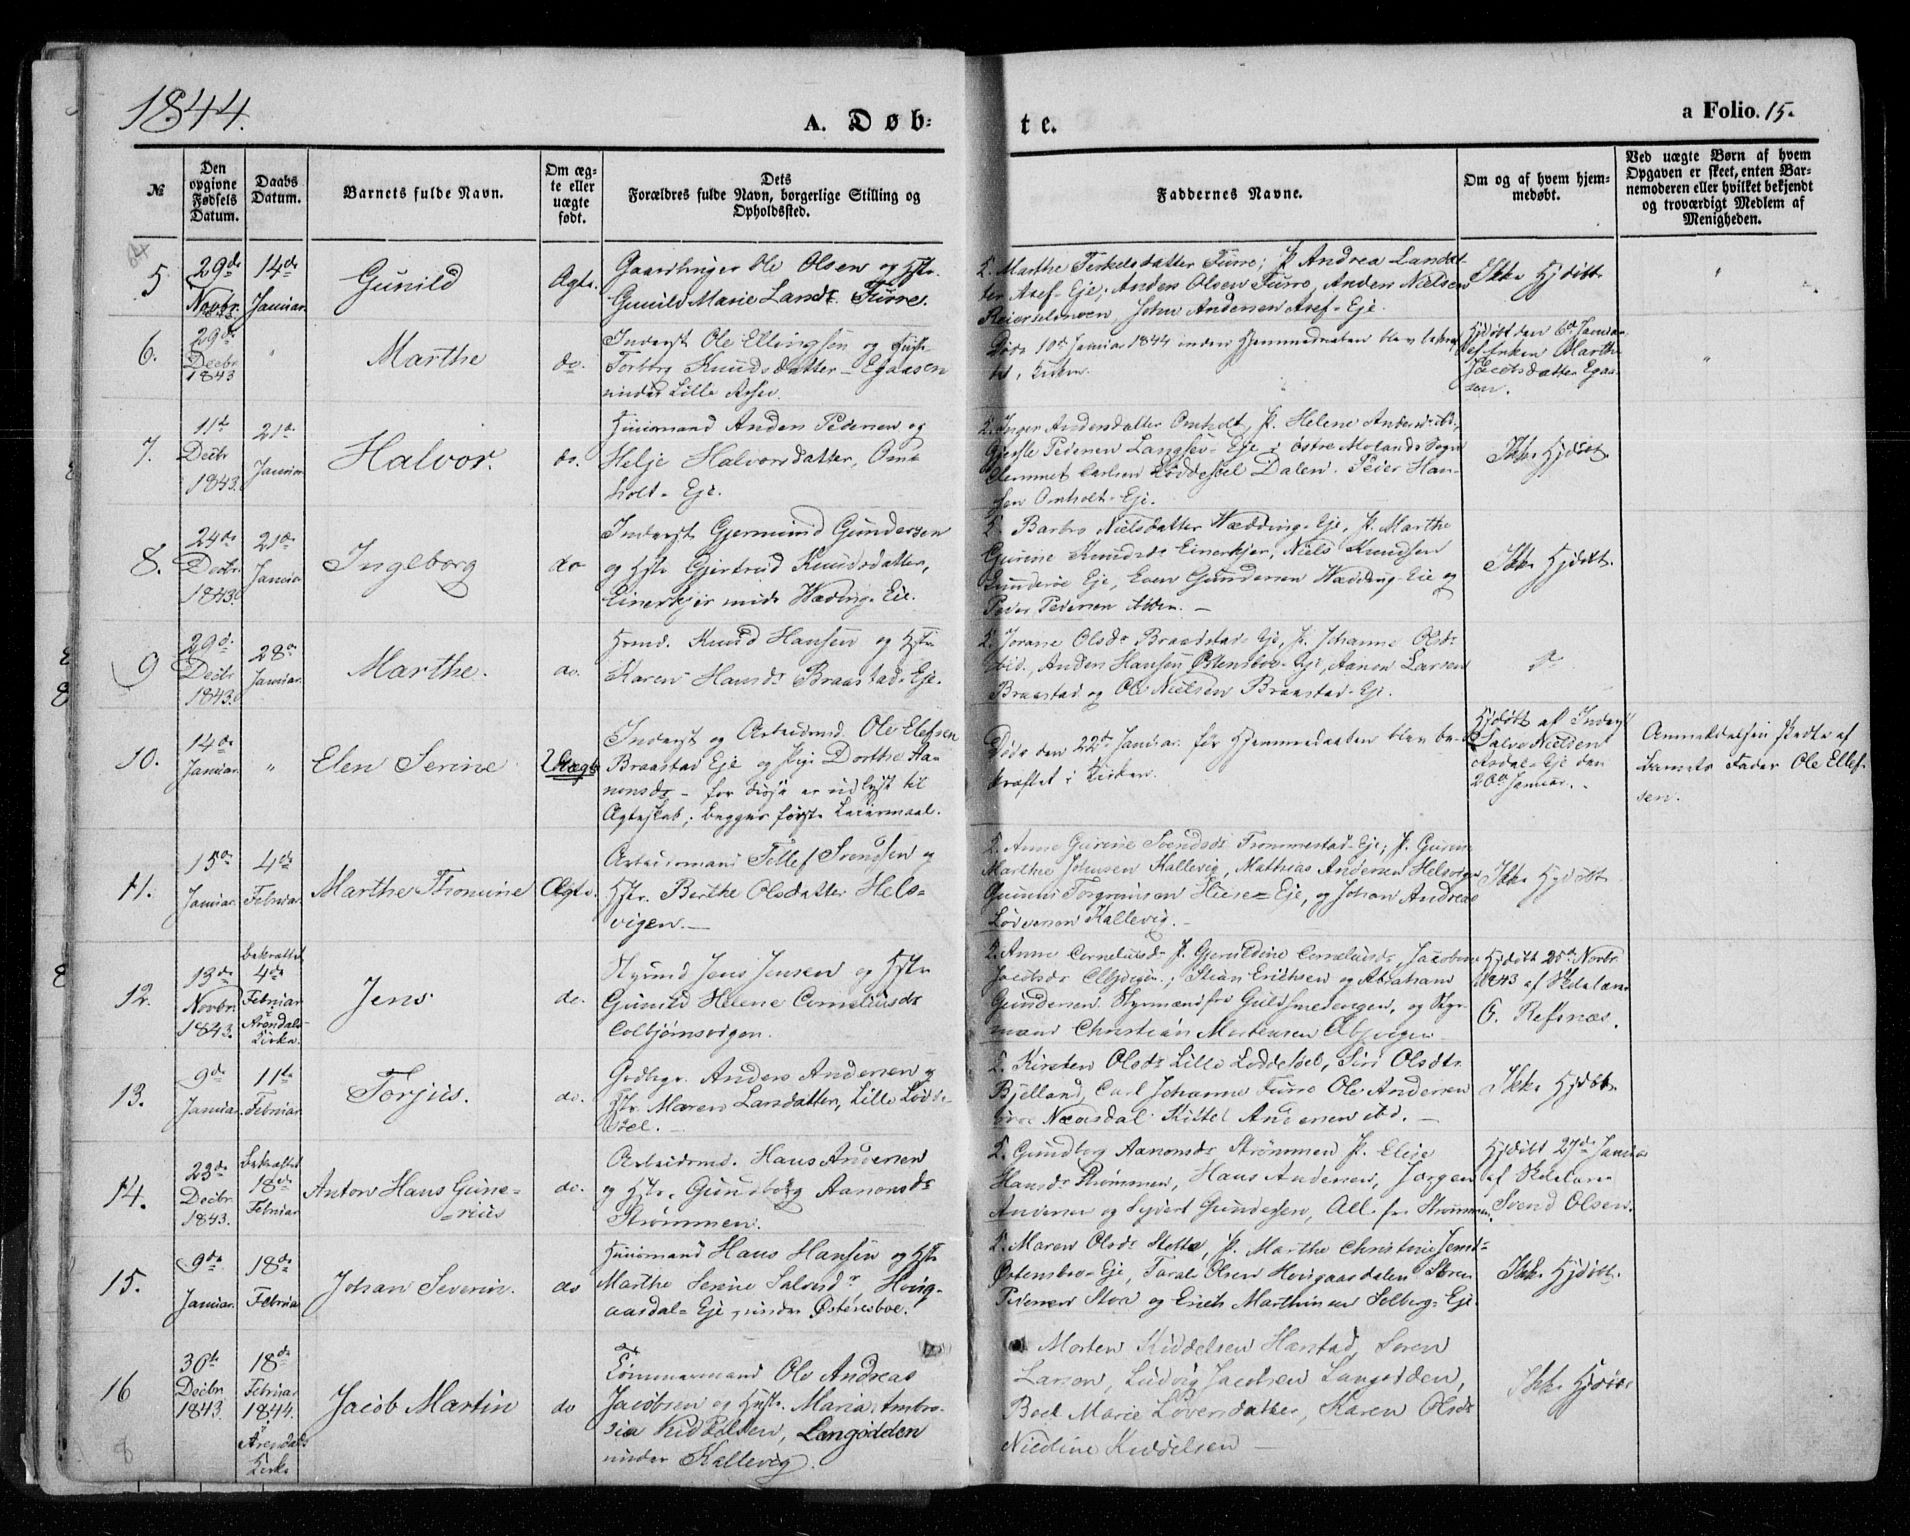 1844.
A. Døb-
te.
a Folio. 15.
№
Den opgivne Fødsels Datum.
Daabs Datum.
Barnets fulde Navn.
Om ægte eller uægte født.
Dets Forældres fulde Navn, borgerlige Stilling og Opholdssted.
Faddernes Navne.
Om og af hvem hjemmedøbt.
Ved uægte Børn af hvem Opgaven er skeet, enten Barnemoderen eller hvilket bekjendt og troværdigt Medlem af Menigheden.
5
29de Novbr. 1843.
14de Januar.
Gunild
Ægte.
Gaardbruger Ole Olsen og Hstr.
Gunild Marie Larsdr. Furre.
Marthe Terkelsdatter Furre; P. Andrea Larsdat-
ter Asef-Eje; Anders Olsen Furre, Anders Nielsen
John Andersen Asef-Eje.
Ikke Hjdøbt
"
6.
29de Decbr 1843
"
Marthe
do.
Inderst Ole Ellingsen og Hust-
Torborg Knudsdatter Egaasen
under Lille Asser.
Døde 10de Januar 1844 inden Hjemmedaaben blev bekræf-
tet i Kirken.
Hjdøbt den 6te Januar
af Enken Marthe
Jacobsdatter Egaa-
sen.
"
7.
11te Decbr 1843.
21de Januar
Halvor.
do.
Huusmand Anders Pedersen og
Helje Halvorsdatter, Om-
holt-Eje.
Inger Andersdatter Omholt, P. Helene Andersd ibd.,
Pedersen Langsev-Eje i østre Molands Sogn
Clemmet Carlsen Løddesøel Dalen. Peier Han-
sen Omholt-Eje.
Ikke Hjdøbt
8.
24de Decbr. 1843.
21de Januar
Ingeborg
do
Inderst Gjermund Gundersen
og Hstr Gjertrud Knudsdatter,
Einerkjer under Wædding-Eie.
Barbro Nielsdatter Wædding-Eje, P. Marthe
Gurine Knudsdr Einerkjer, Niels Knudsen
Eje, Even Gundersen Wædding-Eie og
Peder Pedersen
Ikke Hjdøbt.
9
29de Decbr 1843.
28de Januar.
Marthe.
do.
Hmd. Knud Hansen og Hstr
Karen Hansdr Braastad-Eje.
Jorane Olsdr Braastad-Eje, P. Johanne Olsdr
ibid., Anders Hansen Østensboe-Eje, Aanon Larsen
Braastad og Ole Nielsen Braastad-Eje.
10.
14de Januar.
"
Elen Serine
Uægte
Inderst og Arbeidsmd. Ole Elefsen
Braastad Eje og Pige Dorthe Aa-
nonsdr - for disse er udlyst til
Ægteskab; begges første Leiermaal.
Døde den 22de Januar før Hjemmedaaben blev be-
kræftet i Kirken.
Hjdøbt af Inderst
Salve Nielsen
Asdal-Eje den
20de Januar.
Anmeldelsen skedte af
Barnets Fader Ole Ellef-
sen.
11.
15de Januar.
4de Februar.
Marthe Thomine
Ægte.
Arbeidsmand Tellef Svendsen og
Hstr. Berthe Olsdatter Hels-
vigen.
Anne Gurine Svendsdr Trommestad-Eje; P. Guren
Marthe Johnsen Kallevig, Matthias Andersen Helsvigen
Gunne Torgrimsen Hiese-Eje, og Johan Andreas
Kallevig.
Ikke Hjdøbt
12.
13de Novbr. 1843.
bekræftet 4de Februar i Arendals Kirke.
Jens
do.
Styrmd Jens Jensen og Hstr
Gunild Helene Corneliusdr
Colbjørnsvigen.
Anne Corneliusdr P. Gjeruldine Corneliusdr, Jacobine
Jacobsdr Stian Erichsen og Abraham
Gundersen Styrmænd fra Guldsmedengen, og Styr-
mand Christian Mortensen
Hjdøbt 25de Novbr
1843 af Skolelærer
G. Refsnæs.
13.
9de Januar.
11te Februar.
Torjus.
do.
Grdbgr. Anders Andersen og
Hstr. Maren Larsdatter, Lille Lødde-
søel.
Kirsten Olsdr Lille Løddesøel, Siri Olsdtr
Bjelland, Carl Johannes Furre Ole Andersen
Næsdal Kittel Andersen ibd.
Ikke Hjdøbt
14.
23de Decbr. 1843.
bekræftet 18de Februar
Anton Hans Gune-
=rius
do.
Arbeidsmd. Hans Andersen
og Hstr. Gundborg Aanonsdr
Strømmen.
Gundborg Aanonsdr Strømmen P. Elise
Hansdr Strømmen, Hans Andersen, Jørgen
Andersen og Syvert Gundersen, Alle fra Strømmen.
Hjdøbt 27de Januar
af Skolelærer
Svend Olsen.
15.
9de Januar.
18de Februar
Johan Severin.
do
Huusmand Hans Hansen og Hstr
Marthe Serine Salvesdr. Houg-
aasdal=Eje, under Østensboe.
Maren Olsdr P. Marthe Christine Jensd-
Østensboe-Eje, Taral Olsen Hougaasdalen Søren
Pedersen Stoa og Erich Marthinsen Solberg-Eje.
Ikke Hjdøbt.
16
30te Decbr 1843.
18de Februar 1844. i Arendals Kirke
Jacob Martin
do
Tømmermand Ole Andreas
Jacobsen og Hustr. Maria Ambro-
sia Kiddelsen, Langødden
under Kallevig.
Morten Kiddelsen Harstad, Søren
Larsen, Ludvig Jacobsen Langødden,
Boel Marie Løversdatter, Karen Olsdr
Nicoline Kiddelsen
Ikke Hjdøbt
8